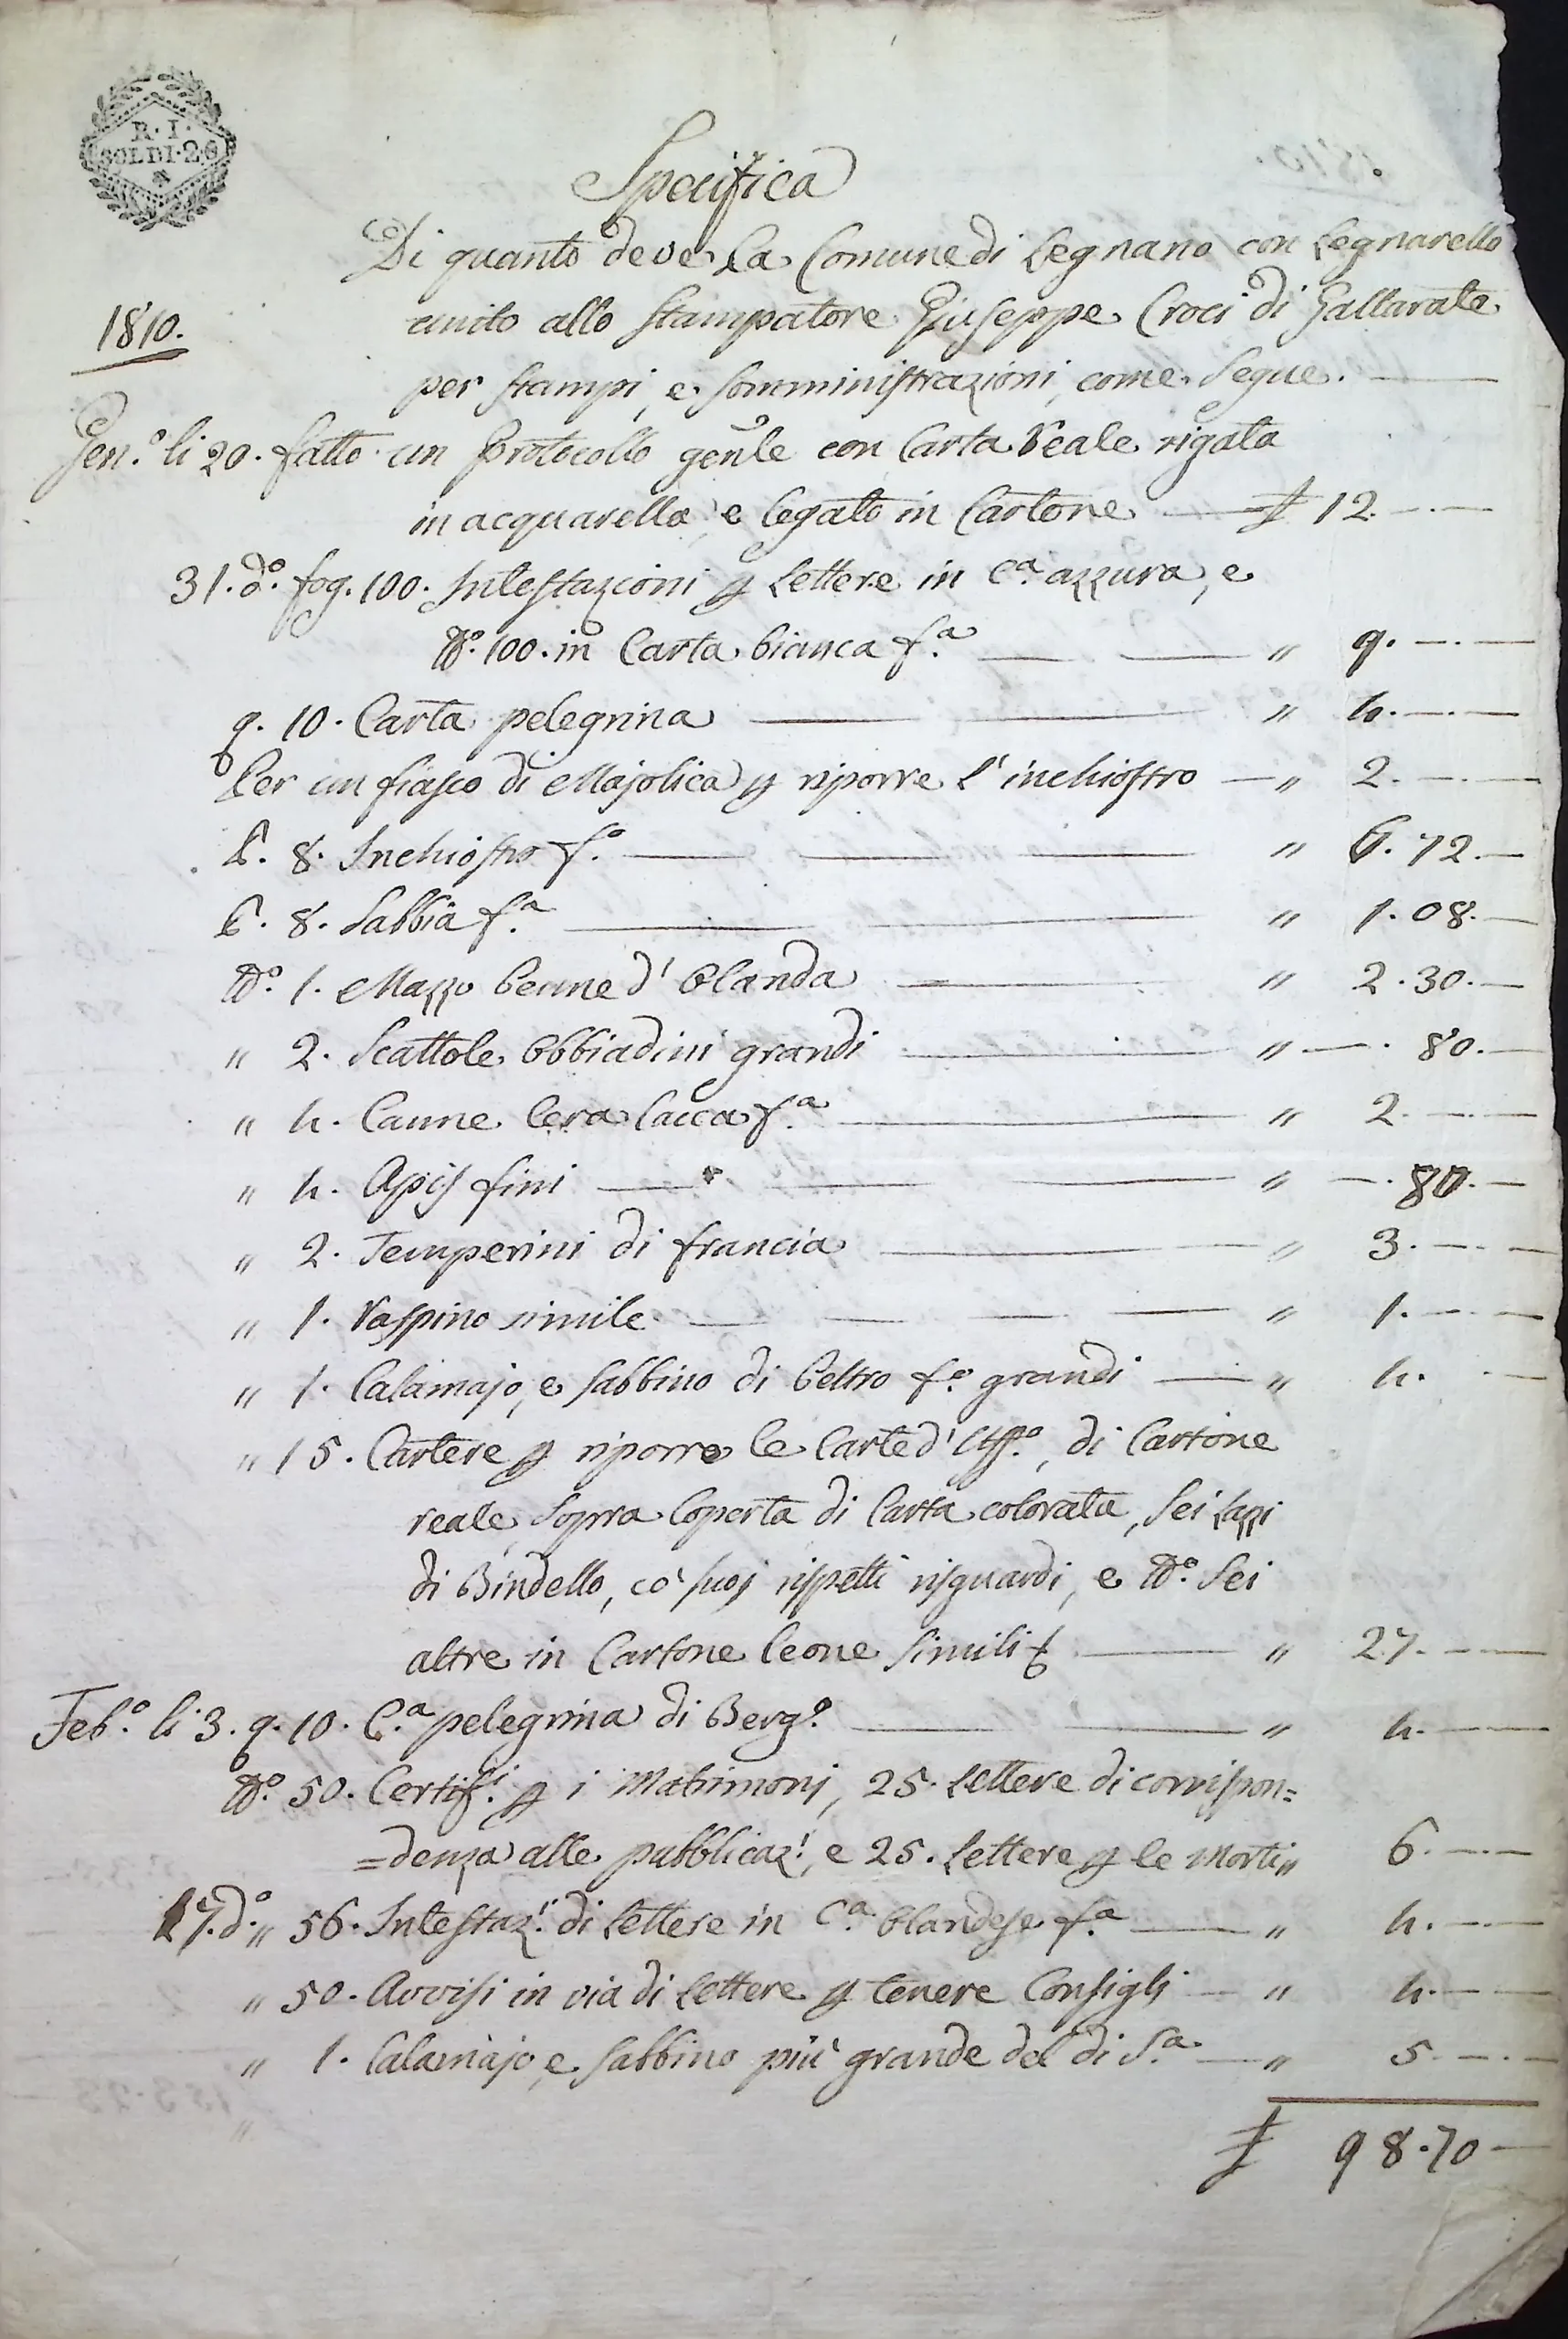 R. I.
SOLDI. 20
Specifica
Di quanto deve la Comune di Legnano con Legnarello
1810.
unito allo Stampatore Giuseppe Croci di Gallarate
per stampi, e somministrazioni, come segue. —
Gen.º li 20. fatto un Protocollo gen̄le con Carta reale rigata
in acquarella, e legato in Cartone — £ 12. — —
31. dº. fog. 100. Intestazioni p Lettere in C.ª azzura, e
Nº. 100. in Carta bianca f.ª — — " 9. — —
q. 10. Carta pelegrina — — " 4. — —
Per un fiasco di Majolica p riporre l'inchiostro — " 2. — —
L. 8. Inchiostro f.º — — — " 6. 72. —
L. 8. Sabbia f.ª — — " 1. 08. —
Nº. 1. Mazzo Penne d'Olanda — — " 2. 30. —
" 2. Scattole Obbiadini grandi — — " — . 80. —
" 4. Canne Cera lacca f.ª — " 2. — —
" 4. Apis fini — — — " — . 80. —
" 2. Temperini di francia — — " 3. — —
" 1. Raspino simile — — — — " 1. — —
" 1. Calamajo, e sabbino di Peltro f.º grandi — " 4. — —
" 15. Cartere p riporre le Carte d'Uff.º, di Cartone
reale, sopra Coperta di Carta colorata, sei Lazzi
di Bindello, co' suoi rispetti risguardi, e Nº. sei
altre in Cartone leone simili — " 27. — —
Feb.º li 3. q. 10. C.ª pelegrina di Berg.º — — " 4. — —
Nº. 50. Certif.i p i Matrimonj, 25. Lettere di corrispon=
=denza alle pubblicaz.i, e 25. Lettere p le Morti " 6. — —
17. dº. " 56. Intestaz.i di Lettere in C.ª Olandese f.ª — " 4. — —
" 50. Avvisi in via di Lettere p tenere Consigli — " 4. — —
" 1. Calamajo, e sabbino più grande del di S.ª — " 5. — —
£ 98. 70 —